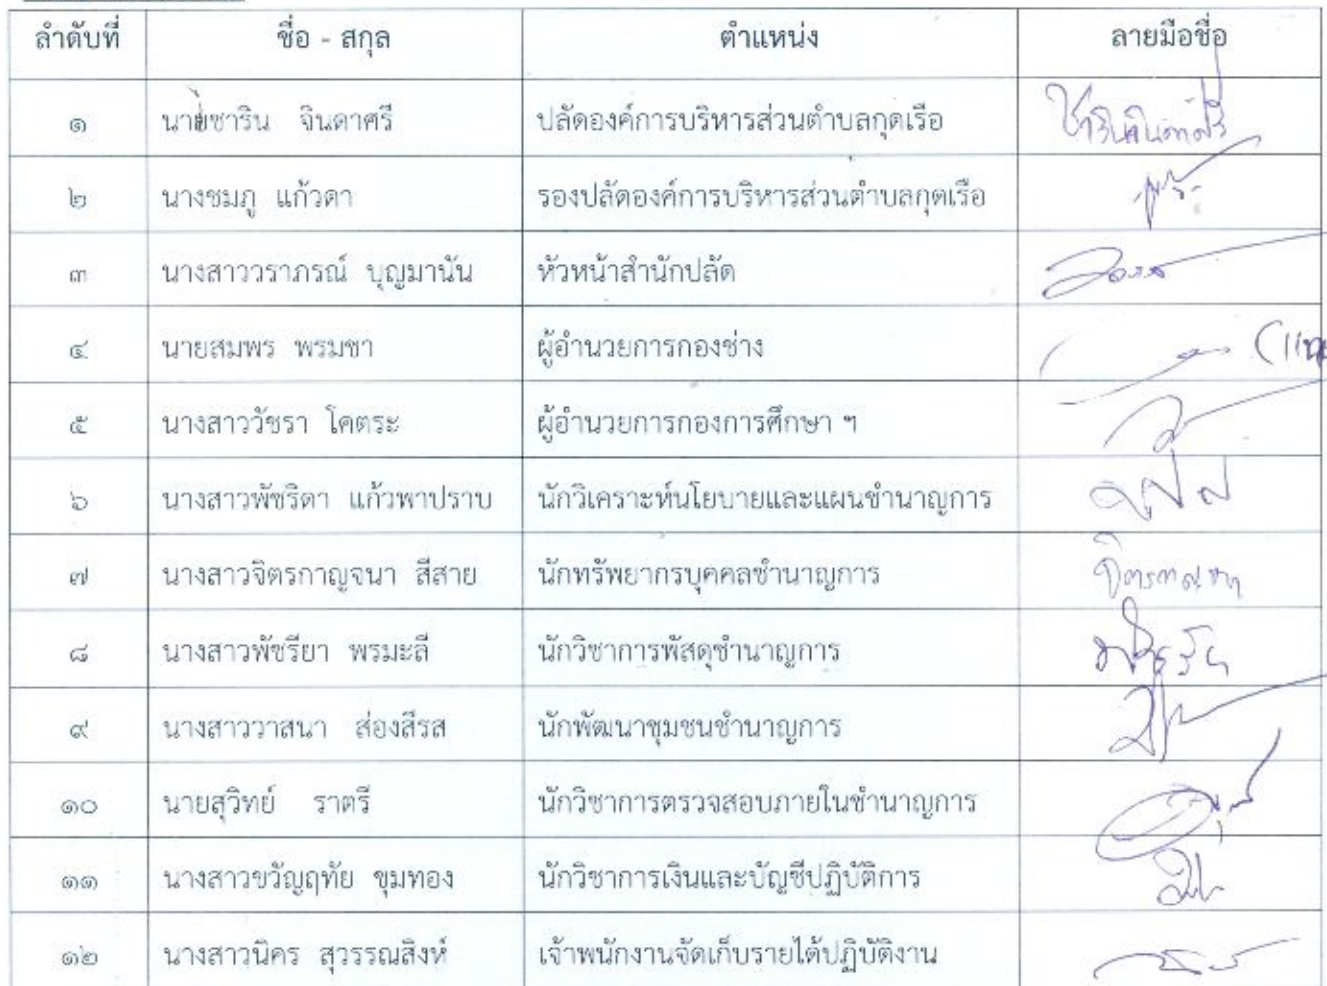 ลำดับที่ ชื่อ - สกุล ตำแหน่ง ลายมือชื่อ
๑ นายชาริน จินดาศรี ปลัดองค์การบริหารส่วนตำบลกุดเรือ
๒ นางชมภู แก้วดา รองปลัดองค์การบริหารส่วนตำบลกุดเรือ
๓ นางสาววราภรณ์ บุญมานัน หัวหน้าสำนักปลัด
๔ นายสมพร พรมชา ผู้อำนวยการกองช่าง
๕ นางสาววัชรา โคตระ ผู้อำนวยการกองการศึกษา ฯ
๖ นางสาวพัชริดา แก้วพาปราบ นักวิเคราะห์นโยบายและแผนชำนาญการ
๗ นางสาวจิตรกาญจนา สีสาย นักทรัพยากรบุคคลชำนาญการ
๘ นางสาวพัชรียา พรมะลี นักวิชาการพัสดุชำนาญการ
๙ นางสาววาสนา ส่องสีรส นักพัฒนาชุมชนชำนาญการ
๑๐ นายสุวิทย์ ราตรี นักวิชาการตรวจสอบภายในชำนาญการ
๑๑ นางสาวขวัญฤทัย ขุมทอง นักวิชาการเงินและบัญชีปฏิบัติการ
๑๒ นางสาวนิคร สุวรรณสิงห์ เจ้าพนักงานจัดเก็บรายได้ปฏิบัติงาน